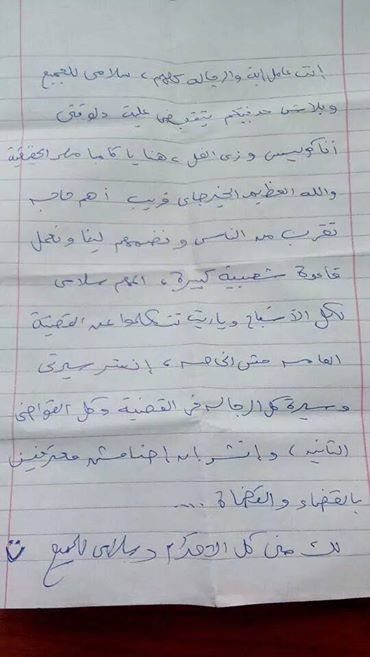 إنت عامل إيه والرجالة كلهم، سلامى للجميع
وبلاش حد فيكم يتقبض علية دلوقتى
أنا كويس وزى الفل، هنا يا كاما مصر الحقيقية
والله العظيم الخير جاى قريب أهم حاجه
نقرب من الناس و نضمهم لينا ونعمل
قاعدة شعبية كبيرة، المهم سلامى
لكل الأشباح وياريت تتكلموا عن القضية
العامه مش الخاصه، إنشر سيرتى
وسيرة كل الرجاله فى القضية وكل القواضى
التانيه، وإنشر إن إحنا مش معترفين
بالقضاء والقضاة ....
لك منى كل الاحترام وسلامى للجميع